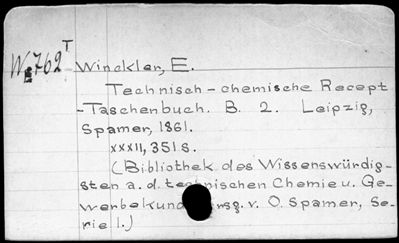 W 762 T
Winckler, E.
Technisch-chemische Recept
-Taschenbuch. B. 2. Leipzig,
Spamer, 1861.
XXXII, 351 s.
(Bibliothek des Wissenswürdig-
sten a. d. technischen Chemie u. Ge-
werbekund rsg. v. O. Spamer, Se-
rie 1.)